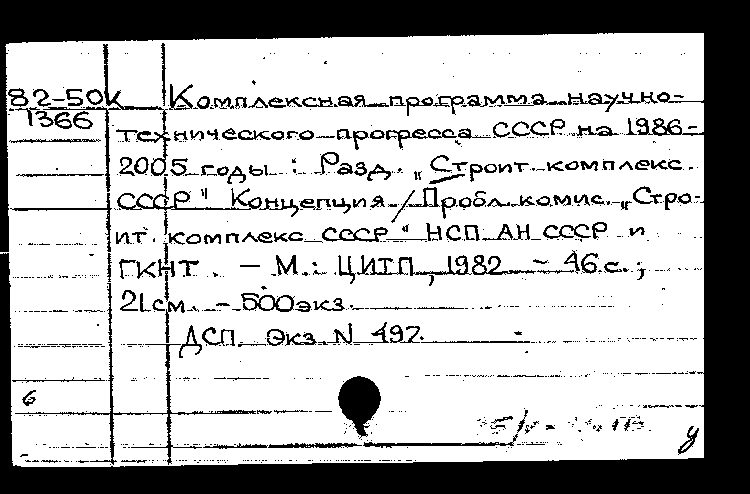 82-50К Комплексная программа научно-
1366
технического прогресса СССР на 1986-
2005 годы : Разд. „Строит. комплекс
СССР" Концепция / Пробл. комис. „Стро-
ит. комплекс СССР" НСП АН СССР и
ГКНТ. - М.: ЦИТП, 1982 - 46 с.;
21 см. - 500 экз.
ДСП. Экз. N 497.
6
у